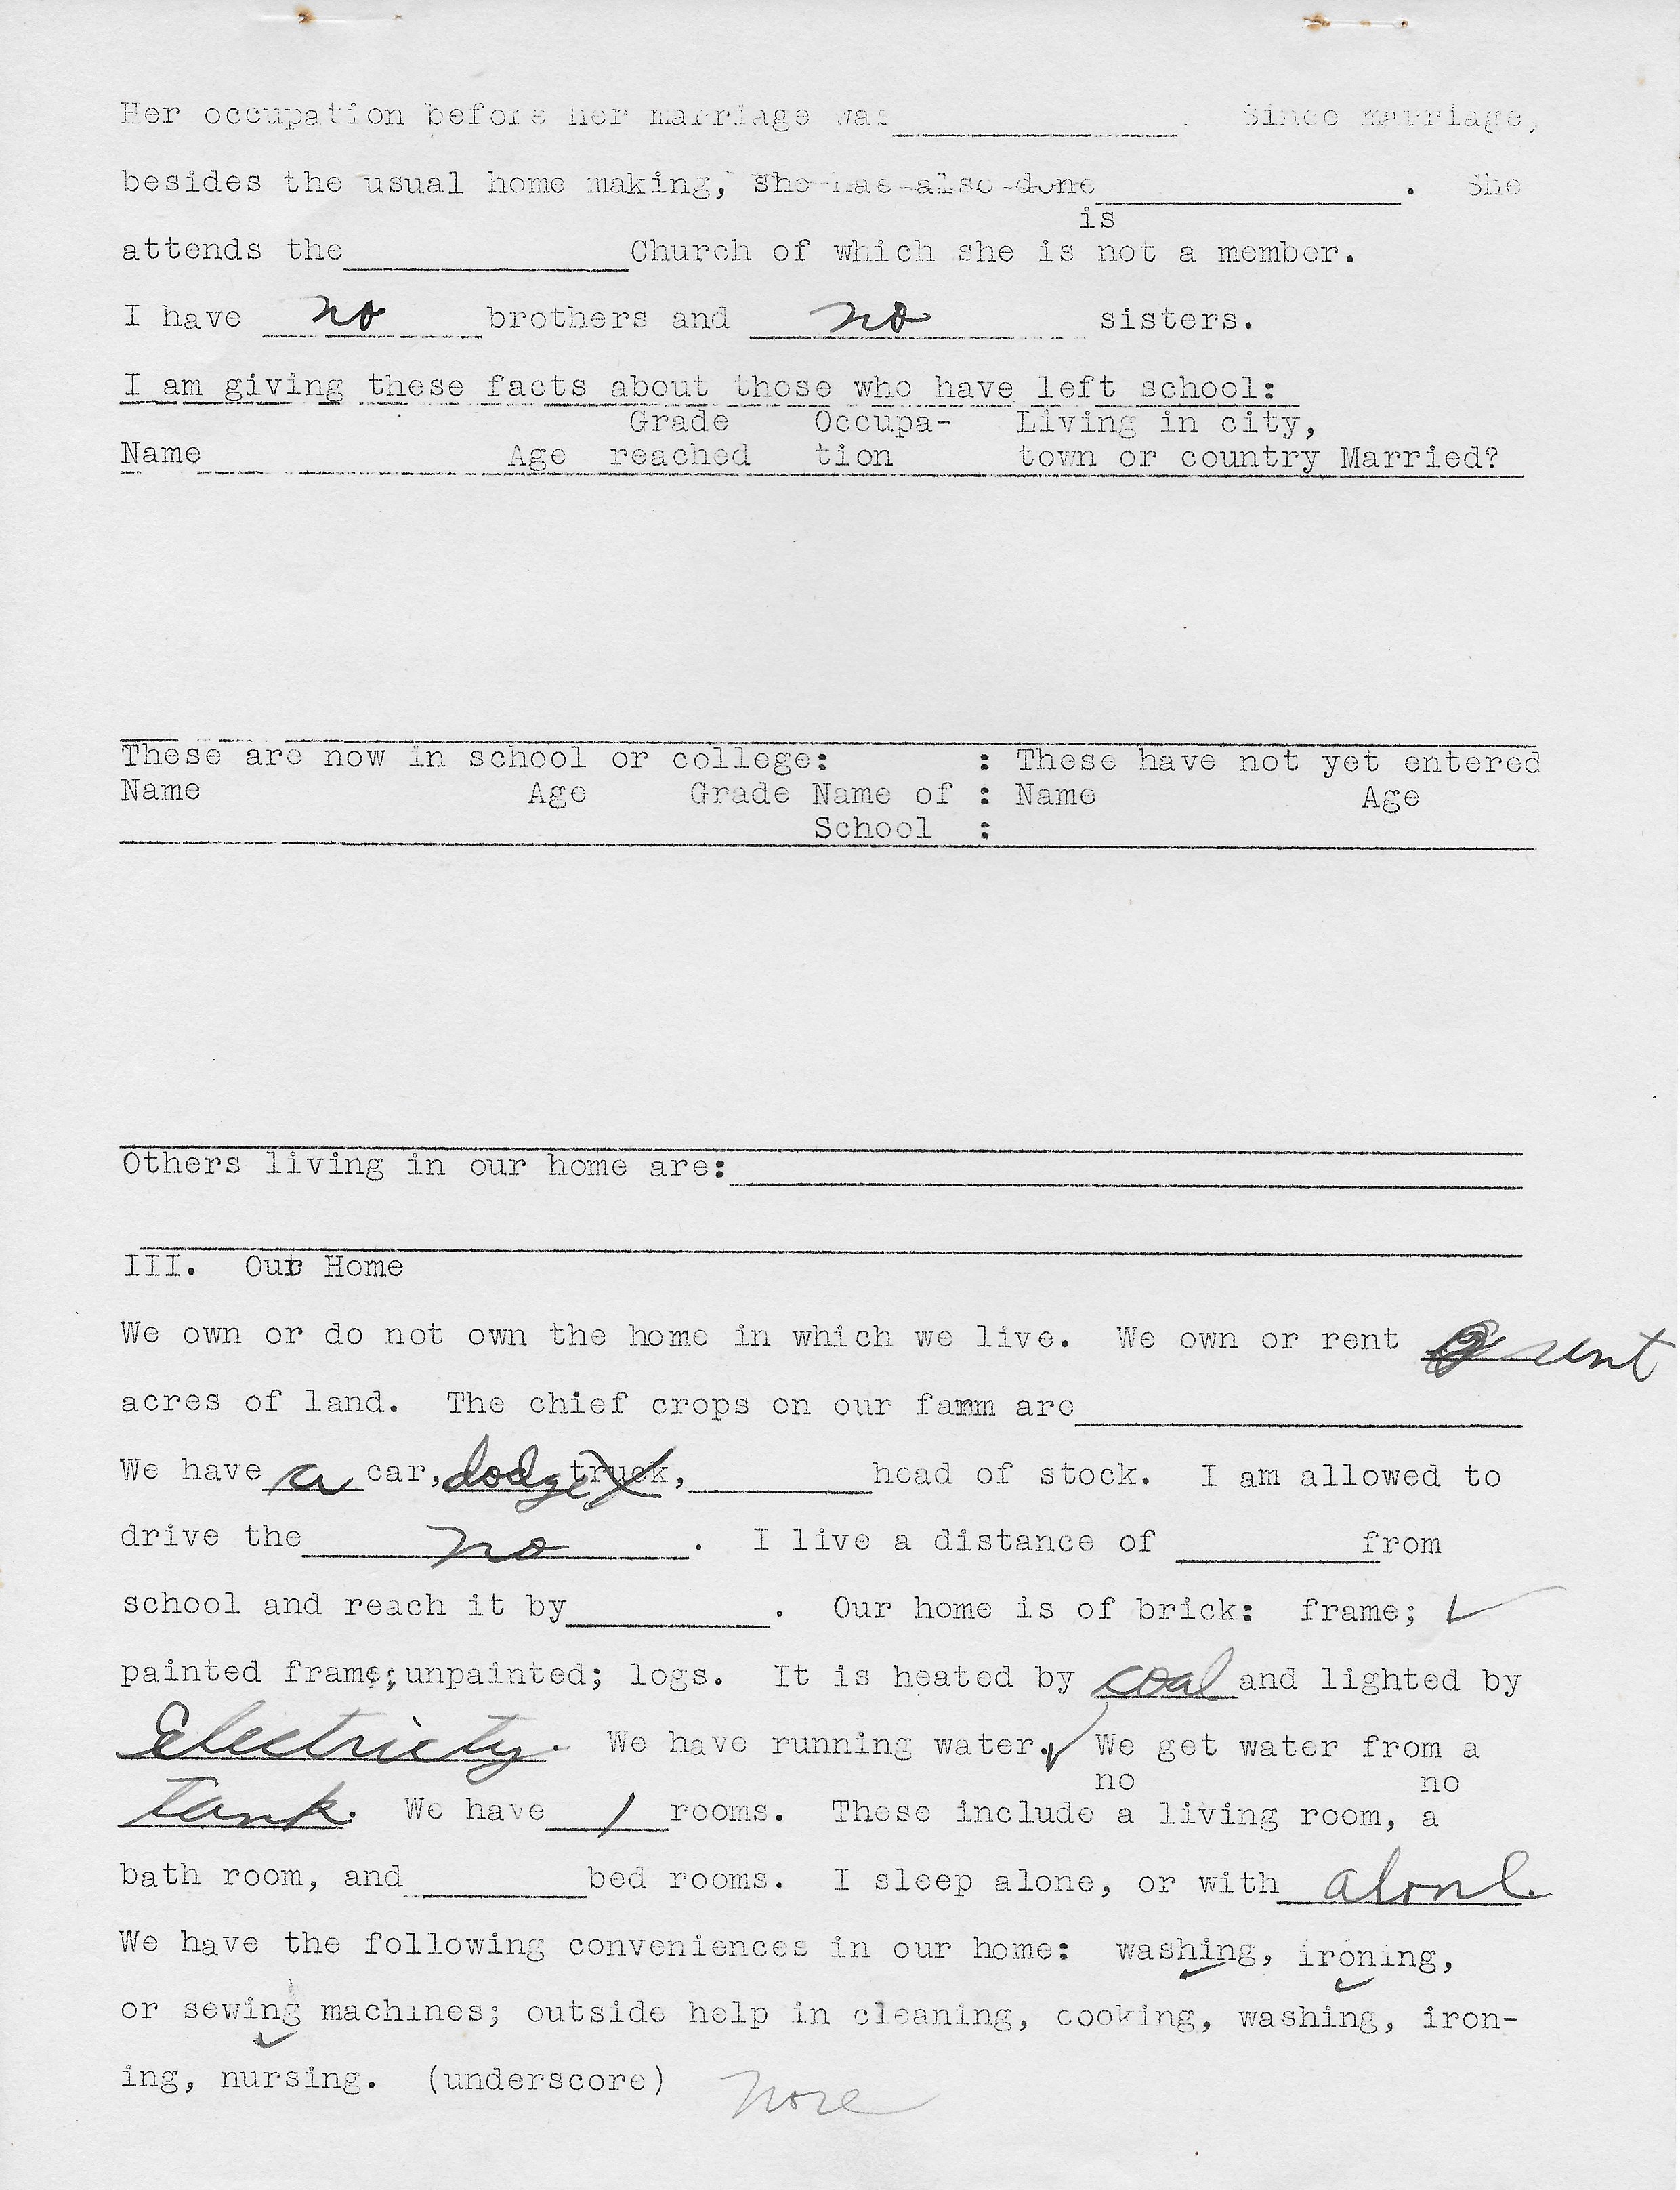 Her occupation before her marriage was____________. Since marriage,
besides the usual home making, she has also done____________. She
is
attends the____________Church of which she is not a member.
I have no brothers and no sisters.
I am giving these facts about those who have left school:
Grade Occupa- Living in city,
Name Age reached tion town or country Married?
These are now in school or college: : These have not yet entered
Name Age Grade Name of : Name Age
School :
Others living in our home are:____________
III. Our Home
We own or do not own the home in which we live. We own or rent rent
acres of land. The chief crops on our farm are____________
We have a car, dodge truck, ________head of stock. I am allowed to
drive the no. I live a distance of ________from
school and reach it by________. Our home is of brick: frame; ✓
painted frame; unpainted; logs. It is heated by coal and lighted by
Electricty. We have running water.✓ We get water from a
no no
Tank. We have 1 rooms. These include a living room, a
bath room, and ________bed rooms. I sleep alone, or with alone.
We have the following conveniences in our home: washing, ironing,
or sewing machines; outside help in cleaning, cooking, washing, iron-
ing, nursing. (underscore) none